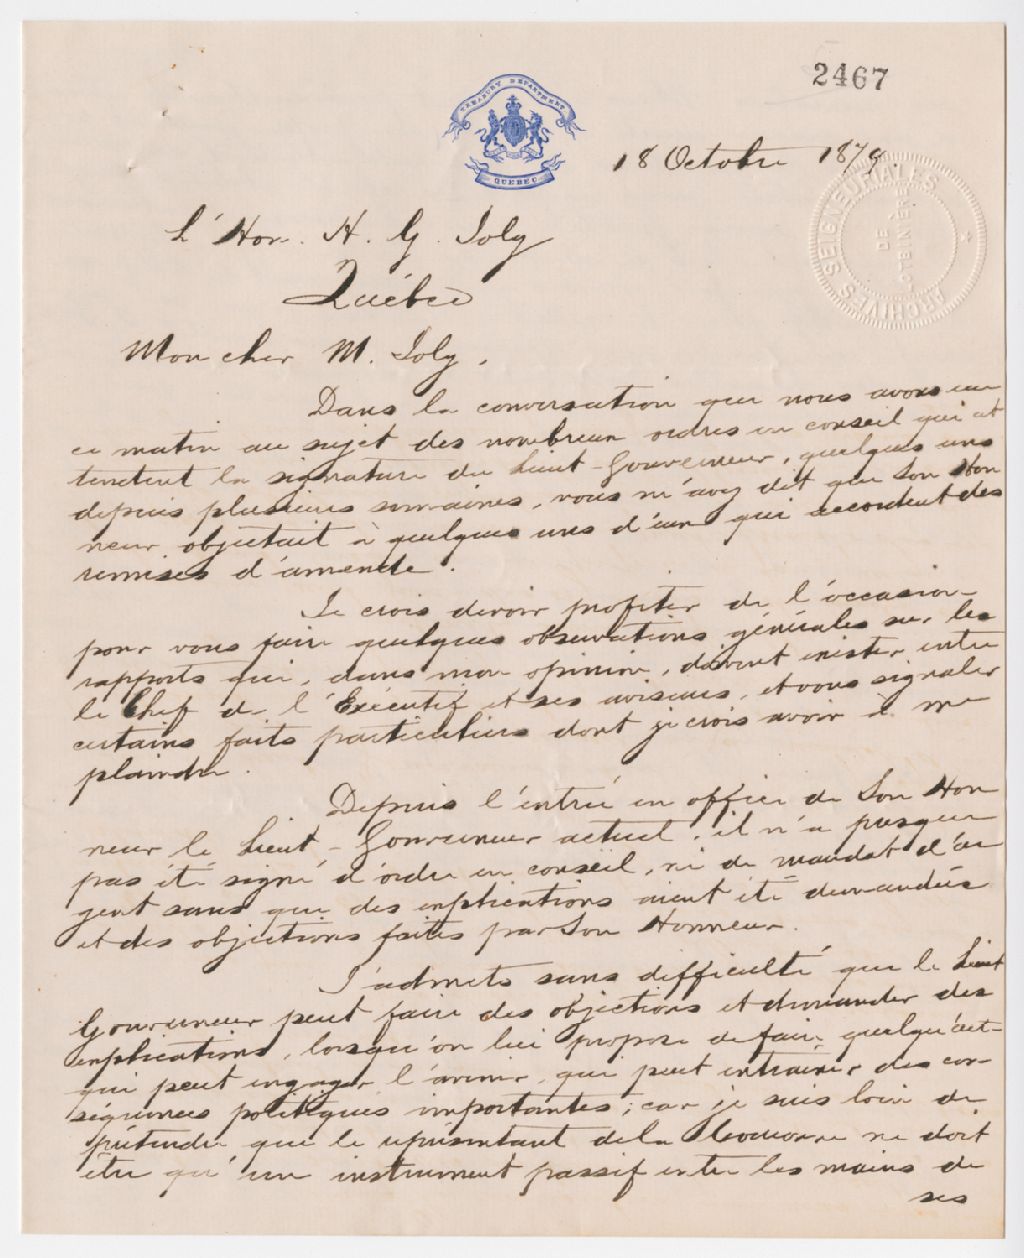 2467
TREASURY DEPARTMENT
QUEBEC
18 Octobre 1879.
ARCHIVES SEIGNEURIALES
DE
LOTBINIÈRE
L'Hon. H. G. Joly
Québec
Mon cher M. Joly,
Dans la conversation que nous avons eue
ce matin au sujet des nombreux ordres en conseil qui at
tendent la signature du Lieut-Gouverneur, quelques uns
depuis plusieurs semaines, vous m'avez dit que Son Hon
neur objectait à quelques uns d'eux qui accordent des
remises d'amende.
Je crois devoir profiter de l'occasion
pour vous faire quelques observations générales sur les
rapports qui, dans mon opinion, doivent exister entre
le Chef de l'Exécutif et ses aviseurs, et vous signaler
certains faits particuliers dont je crois avoir à me
plaindre.
Depuis l'entrée en office de Son Hon
neur le Lieut-Gouverneur actuel, il n'a presque
pas été signé d'ordre en conseil, ni de mandat d'ar
gent sans que des explications aient été demandées
et des objections faites par Son Honneur.
J'admets sans difficulté que le Lieut
Gouverneur peut faire des objections et demander des
explications, lorsqu'on lui propose de faire quelqu'acte
qui peut engager l'avenir, qui peut entraîner des con-
séquences politiques importantes; car je suis loin de
prétendre que le représentant de la Couronne ne doit
être qu'un instrument passif entre les mains de
ses